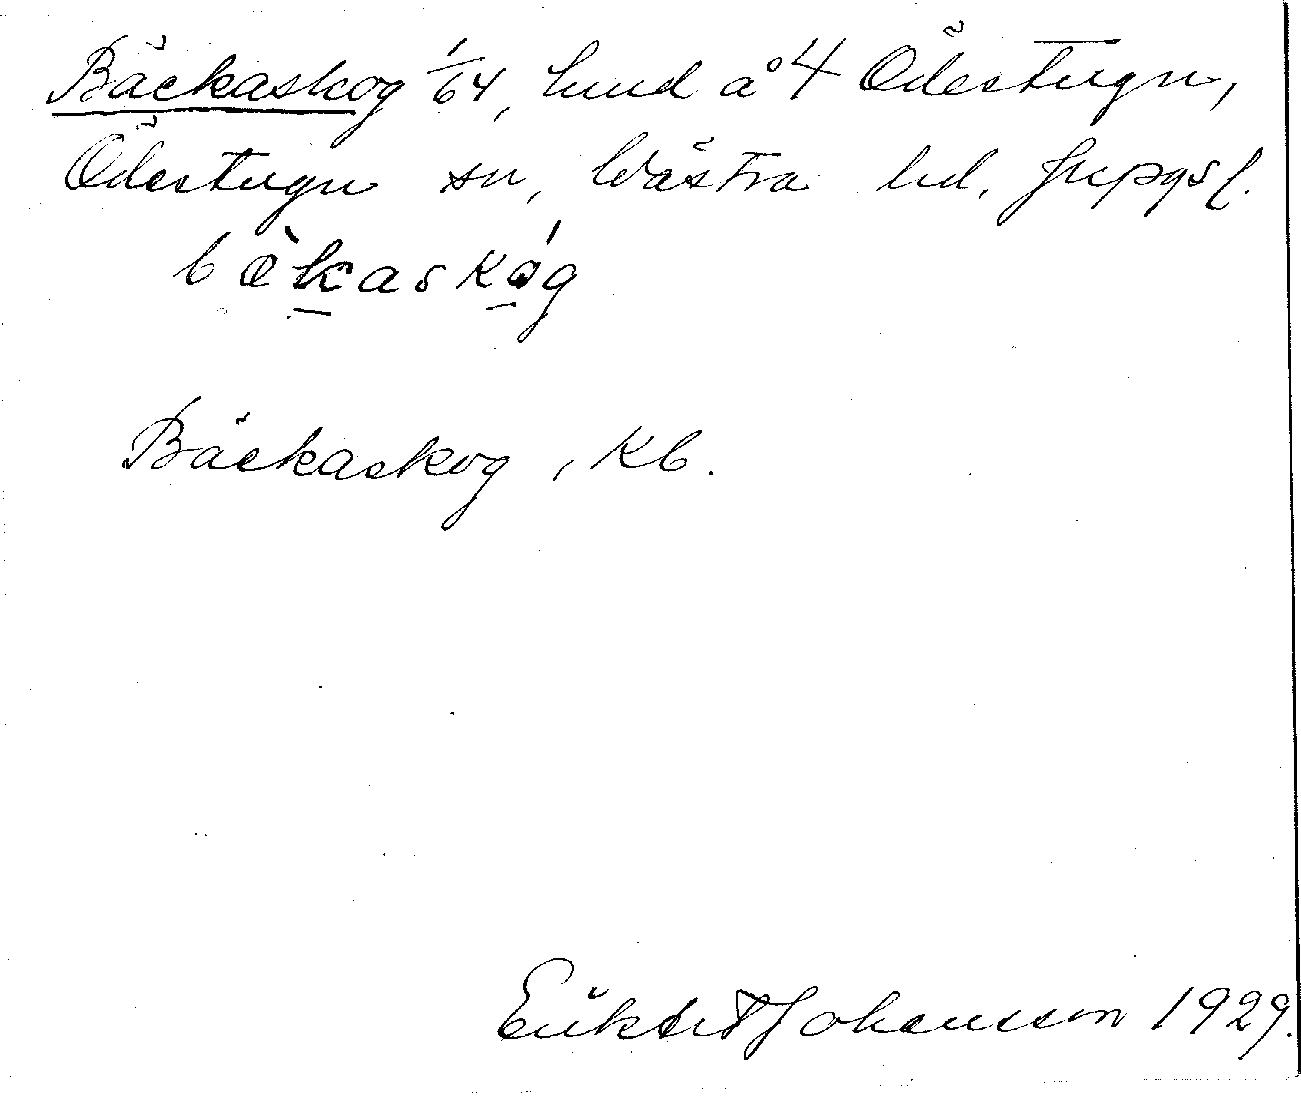 Bäckaskog 1/64, lund å 4 Ödestugu,
Ödestugu sn, Västra hd. Jnkpgs l.
bæ̀kaskóg
Bäckaskog, Kb.
Johansson 1929.